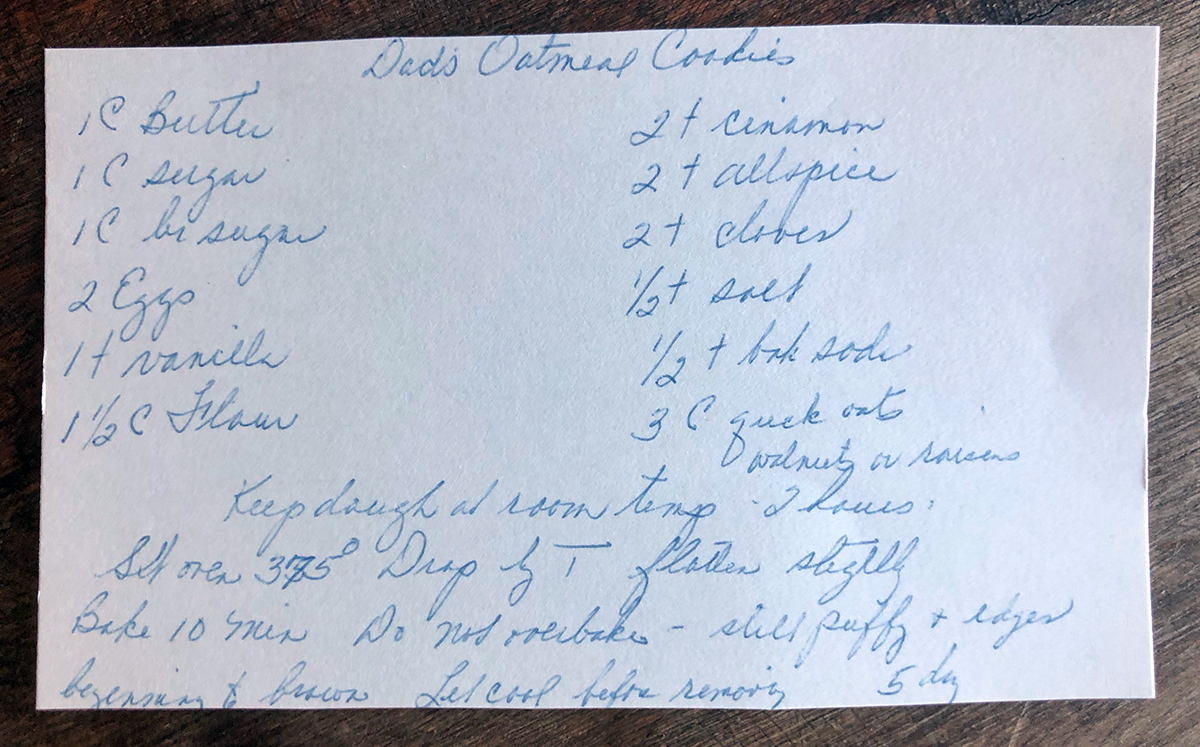 Dad's Oatmeal Cookies
1 C Butter
1 C sugar
1 C br sugar
2 Eggs
1 t vanilla
1 1/2 C Flour
2 t cinamon
2 t allspice
2 t cloves
1/2 t salt
1/2 t bak soda
3 C quck oats
walnuts or raisens
Keep dough at room temp - 2 hours.
Set oven 375° Drop by T flatten slightly
Bake 10 min Do not overbake - still puffy + edges
beginning to brown Let cool before removing 5 day